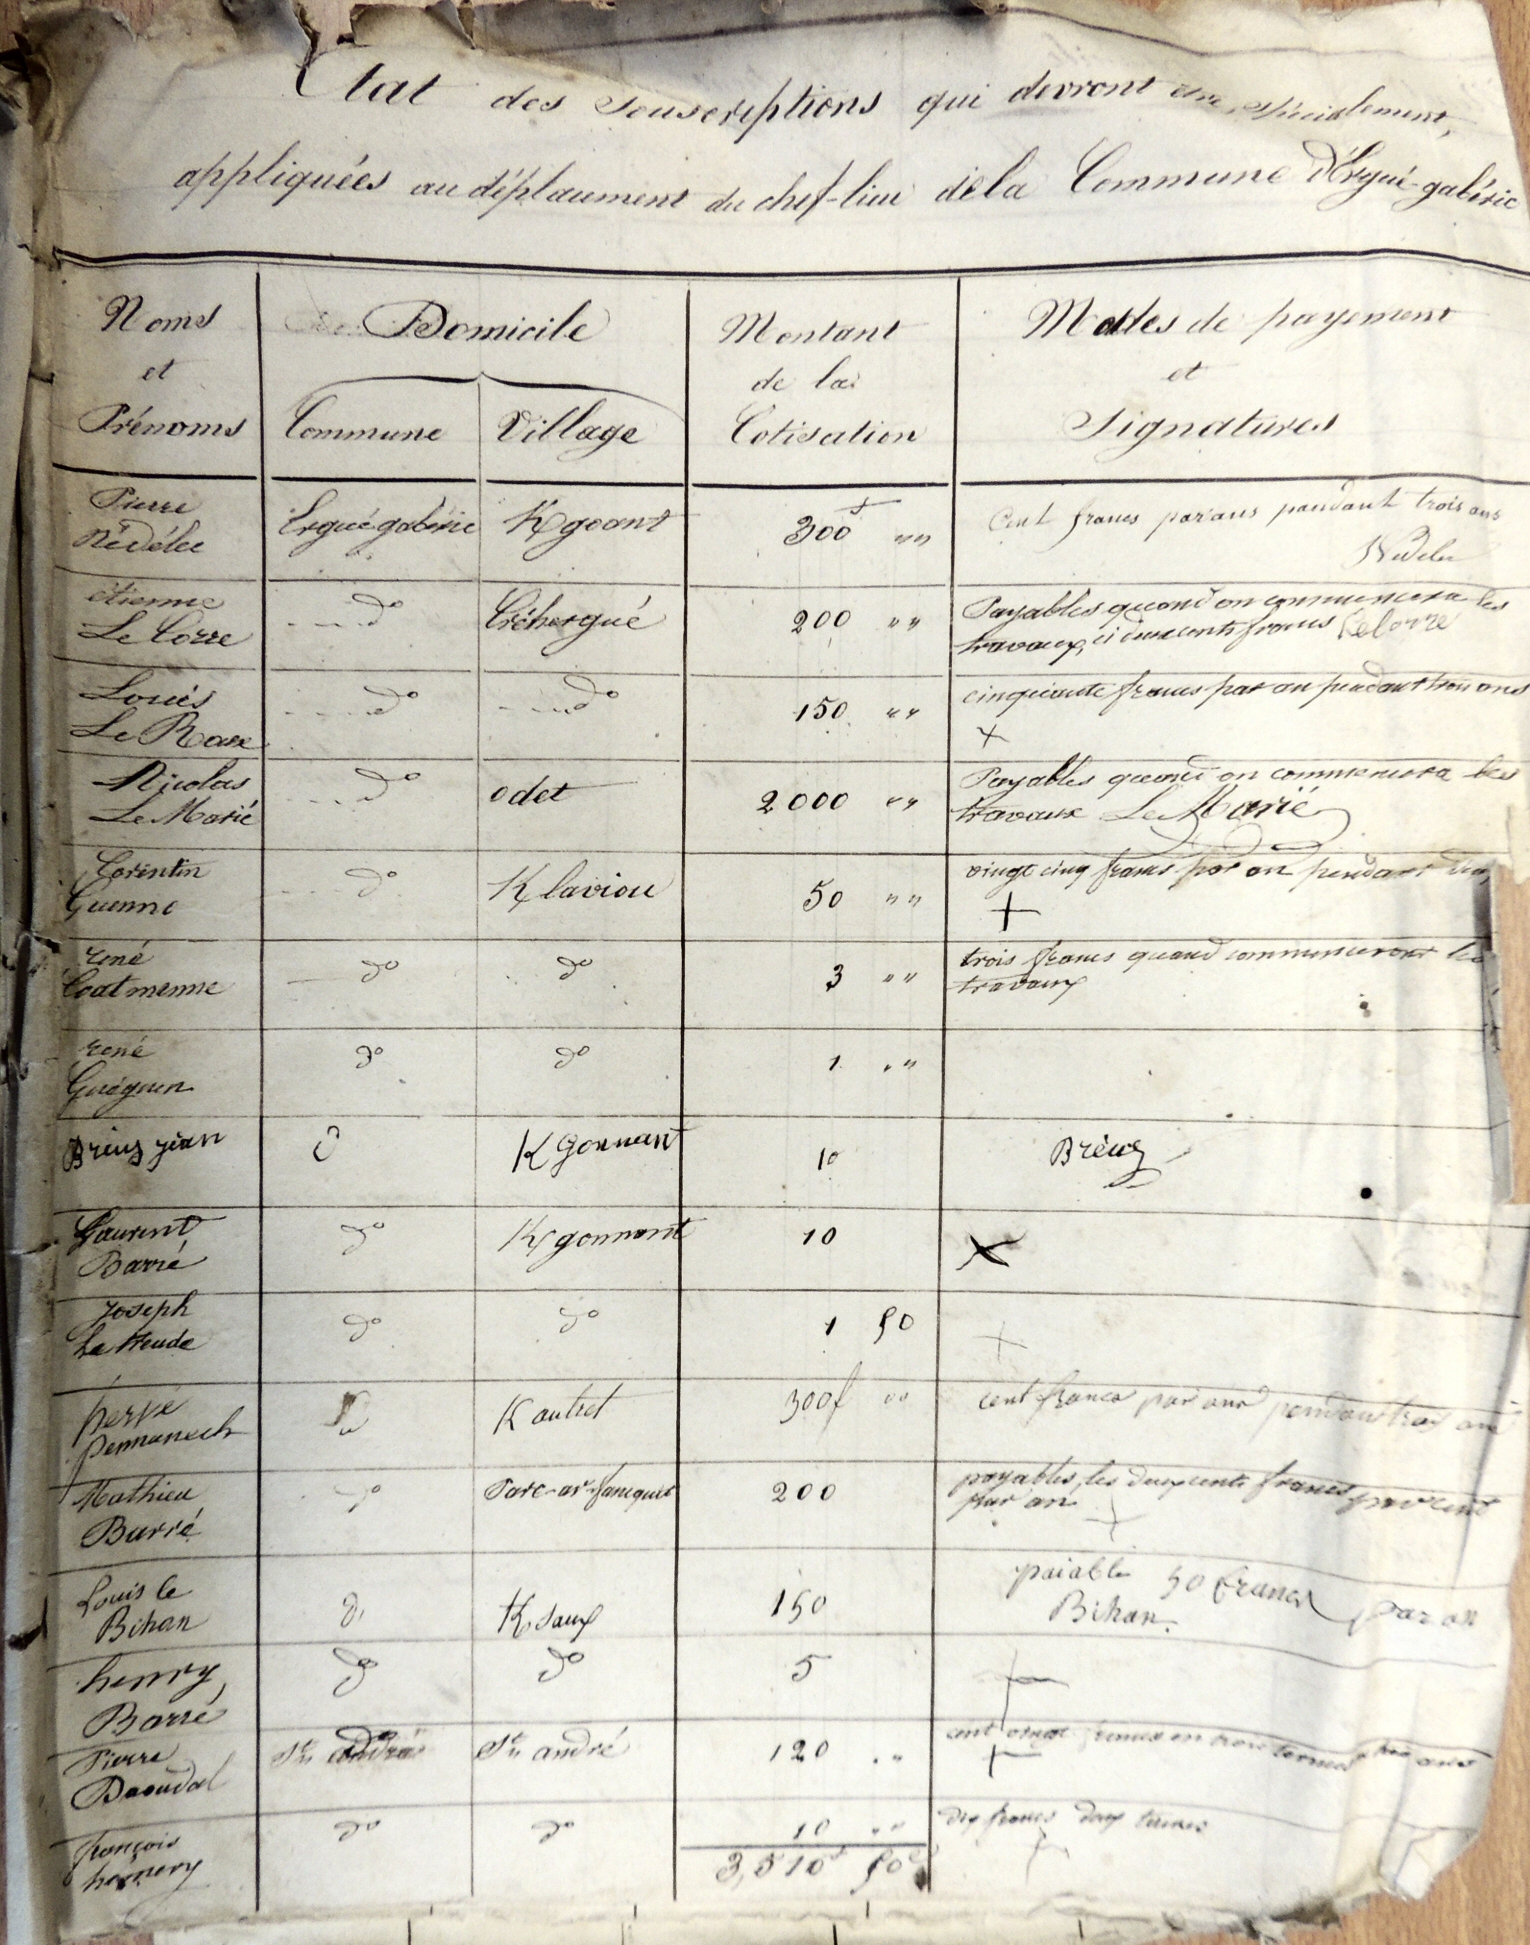 Etat des souscriptions qui devront être spécialement,
appliquées au déplacement du chef-lieu de la Commune d'Ergué-gabéric
Noms
et
Prénoms
Domicile
Commune
Village
Montant
de la
Cotisation
Modes de payement
et
Signatures
Pierre
Nédélec
Ergué-gabéric
Kgoant
300f ""
Cent francs par ans pendant trois ans
Nédelec
étienne
Le Corre
do
Tréhergué
200 ""
Payables quand on commencera les
travaux, ci deux cents francs Le Corre
Louis
Le Roux
do
do
150 ""
cinquante francs par an pendant trois ans
+
Nicolas
Le Marié
do
odet
2000 ""
Payables quand on commencera les
travaux Le Marié
Corentin
Guenno
do
K laviou
50 ""
vingt cinq francs par an pendant
+
rené
Coatmenne
do
do
3 ""
trois francs quand commenceront les
travaux
rené
Guéguen
do
do
1 ""
Bréus jean
d
K gonnant
10
Bréus
Laurent
Barré
do
K gonnant
10
x
Joseph
Le
do
do
1 50
+
hervé
Pennanech
K autret
300f ""
cent francs par ans pendant trois ans
Mathieu
Barré
do
Parc-ar-
200
payables, les deux cents francs par cent
par an
+
Louis le
Bihan
d
K saux
150
paiable 50 francs par an
Bihan.
henry
Barré
do
do
5
+
Pierre
Daoudal
do
St andré
St andré
120 ""
cent vingt francs en trois termes trois ans
+
françois
hemery
do
do
10 ""
dix francs deux termes
+
3,510f 50c